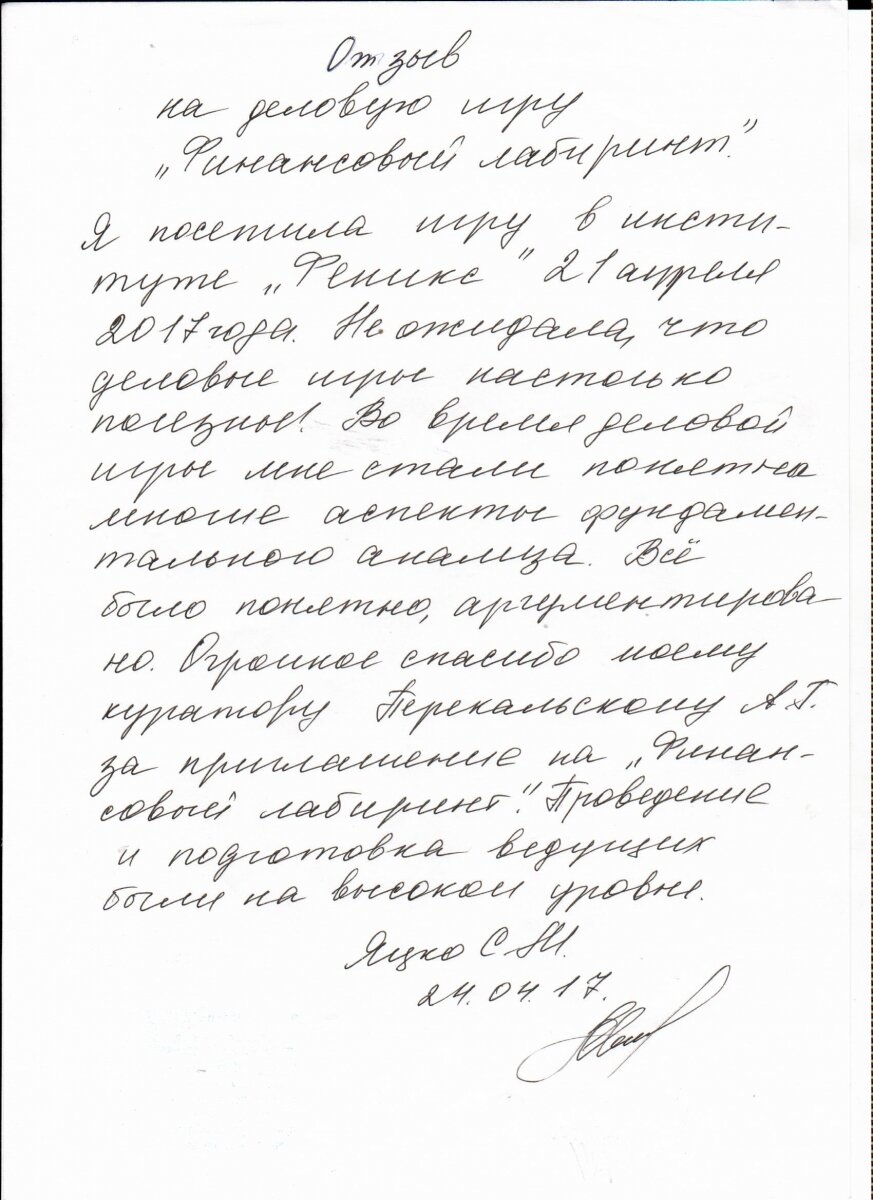 Отзыв
на деловую игру
„Финансовый лабиринт."
Я посетила игру в инсти-
туте „Феникс" 21 апреля
2017 года. Не ожидала, что
деловые игры настолько
полезные! Во время деловой
игры мне стали понятны
многие аспекты фундамен-
тального анализа. Всё
было понятно, аргументирова
но. Огромное спасибо моему
куратору Перекальскому А.Г.
за приглашение на „Финан-
совый лабиринт". Проведение
и подготовка ведущих
были на высоком уровне.
Яцко С.М.
24.04.17.